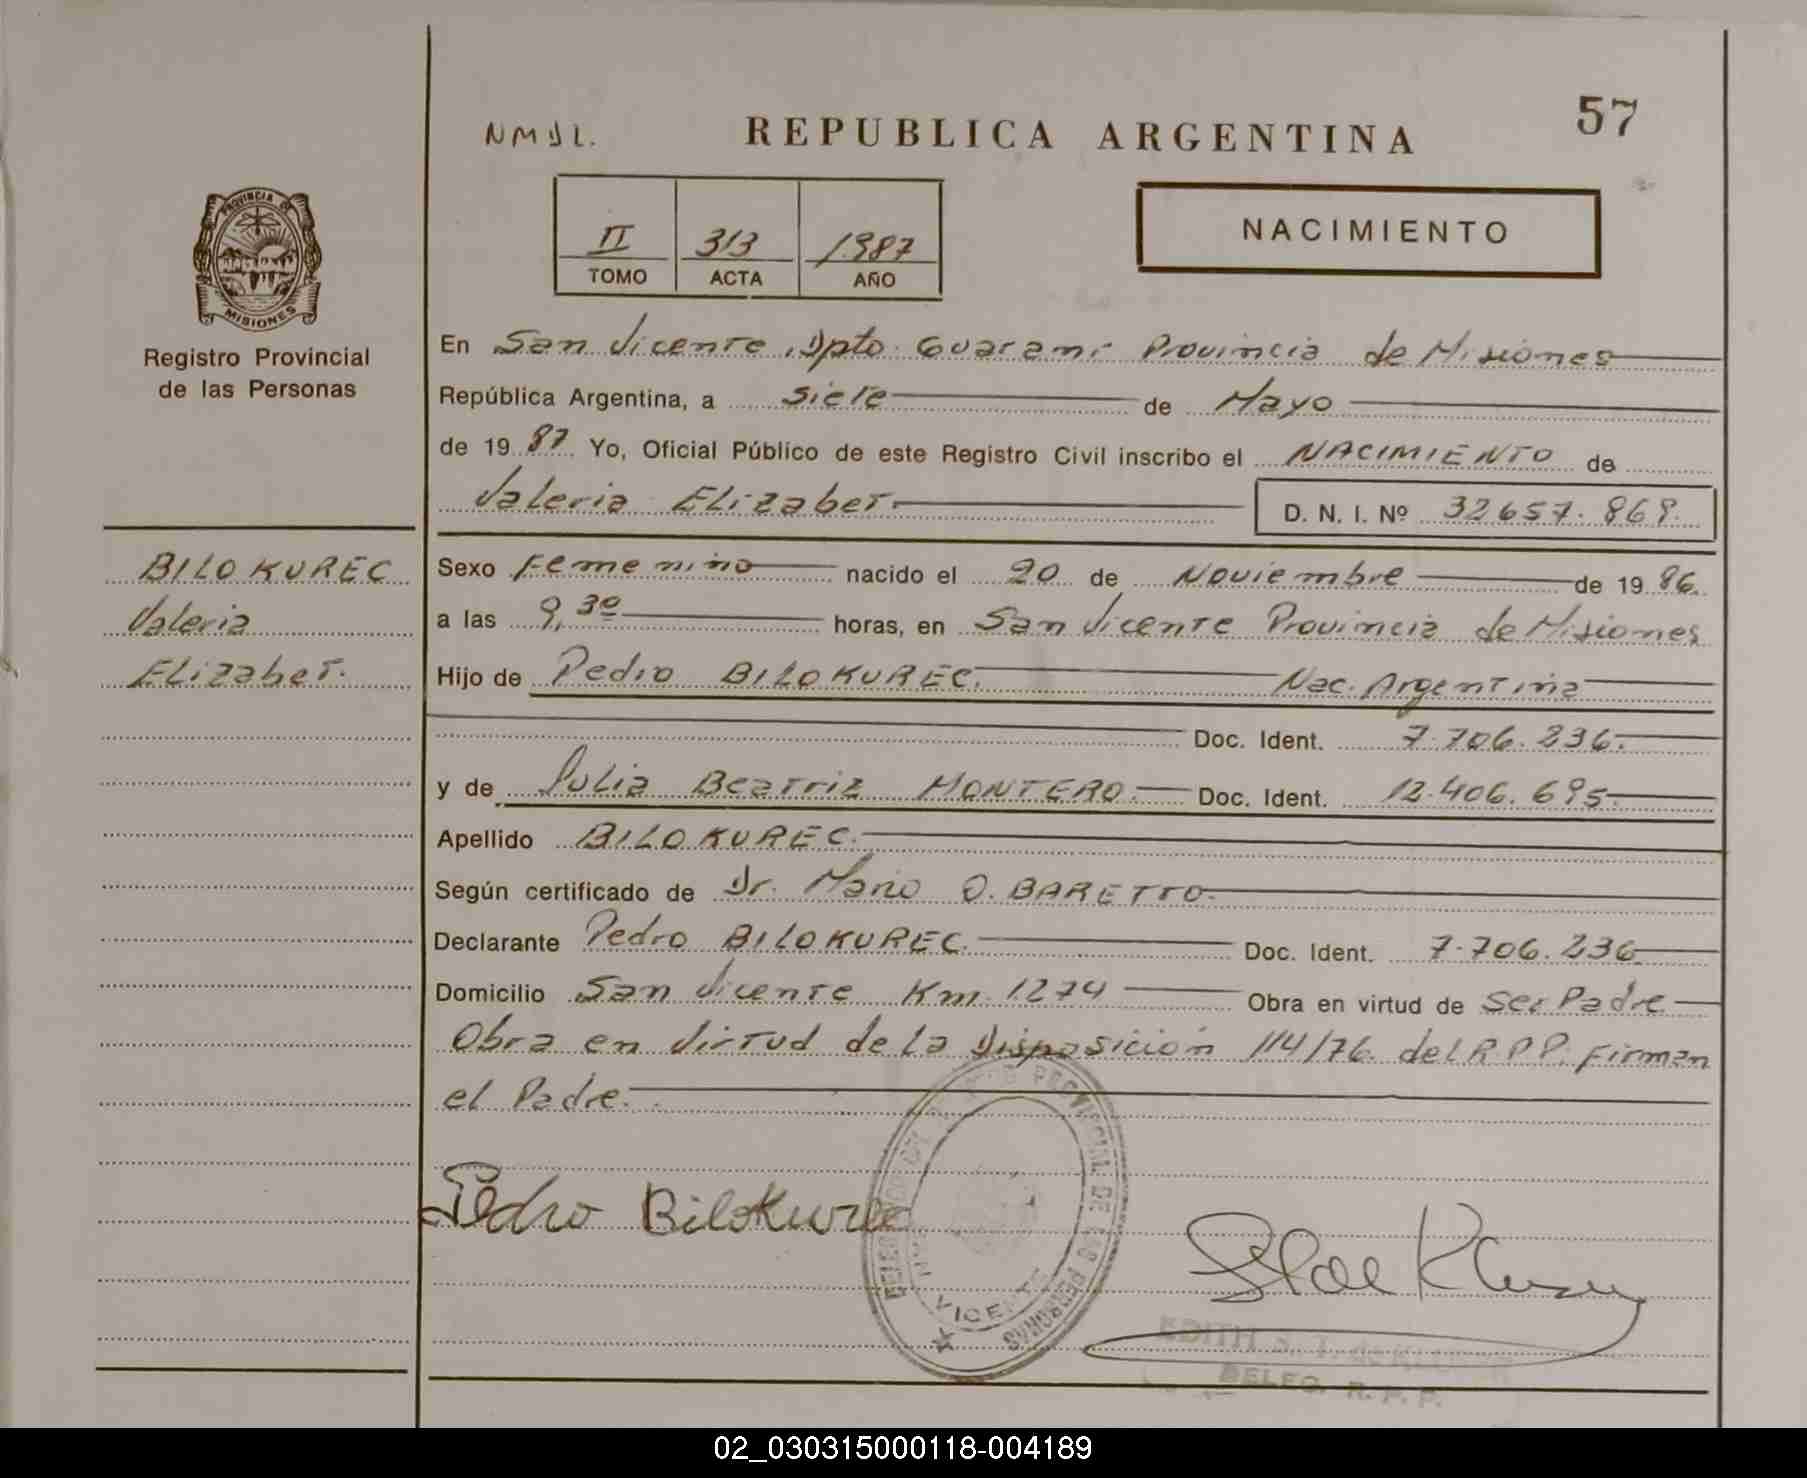 NMJL.
REPUBLICA ARGENTINA
57
PROVINCIA DE
MISIONES
Registro Provincial
de las Personas
II 313 1987
TOMO ACTA AÑO
NACIMIENTO
En San Vicente, Dpto. Guarani Provincia de Misiones
República Argentina, a Siete de Mayo
de 1987 Yo, Oficial Público de este Registro Civil inscribo el NACIMIENTO de
Valeria Elizabet D. N. I. Nº 32657.869.
BILOKUREC
Valeria
Elizabet.
Sexo Femenino nacido el 20 de Noviembre de 1986.
a las 9,30 horas, en San Vicente Provincia de Misiones
Hijo de Pedro BILOKUREC. Nac. Argentina
Doc. Ident. 7.706.236.
y de Julia Beatriz MONTERO. Doc. Ident. 12.406.695.
Apellido BILOKUREC.
Según certificado de Dr. Mario O. BARETTO.
Declarante Pedro BILOKUREC. Doc. Ident. 7.706.236
Domicilio San Vicente Km. 1274 Obra en virtud de Ser Padre
Obra en virtud de la Disposición 114/76. del R.P.P. Firman
el Padre.
Pedro Bilokurec
PROVINCIAL DE LAS PERSONAS
VICENTE
EDITH
DELEG. R. P. P.
02_030315000118-004189